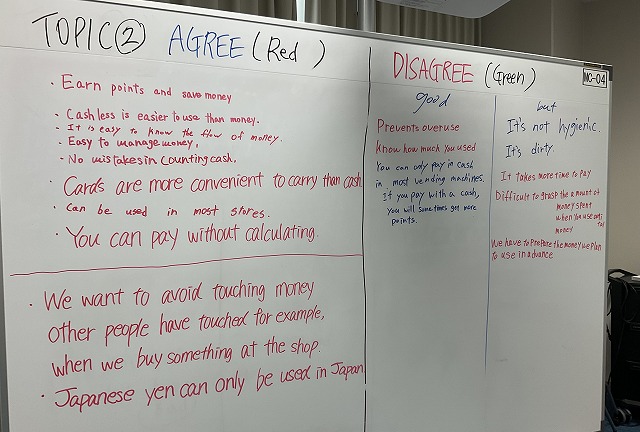 TOPIC② AGREE (Red)
· Earn points and save money
· Cashless is easier to use than money.
· It is easy to know the flow of money.
· Easy to manage money.
· No mistakes in counting cash.
· Cards are more convenient to carry than cash
· Can be used in most stores.
· You can pay without calculating.
· We want to avoid touching money
other people have touched for example,
when we buy something at the shop.
· Japanese yen can only be used in Japan
DISAGREE (Green)
WC-04
good
Prevents overuse
Know how much you used
You can only pay in cash
in most vending machines.
If you pay with a cash,
You will sometimes get more
points.
but
It's not hygienic.
It's dirty.
It takes more time to pay
Difficult to grasp the amount of
money spent
when you use
money
We have to prepare the money we plan
to use in advance